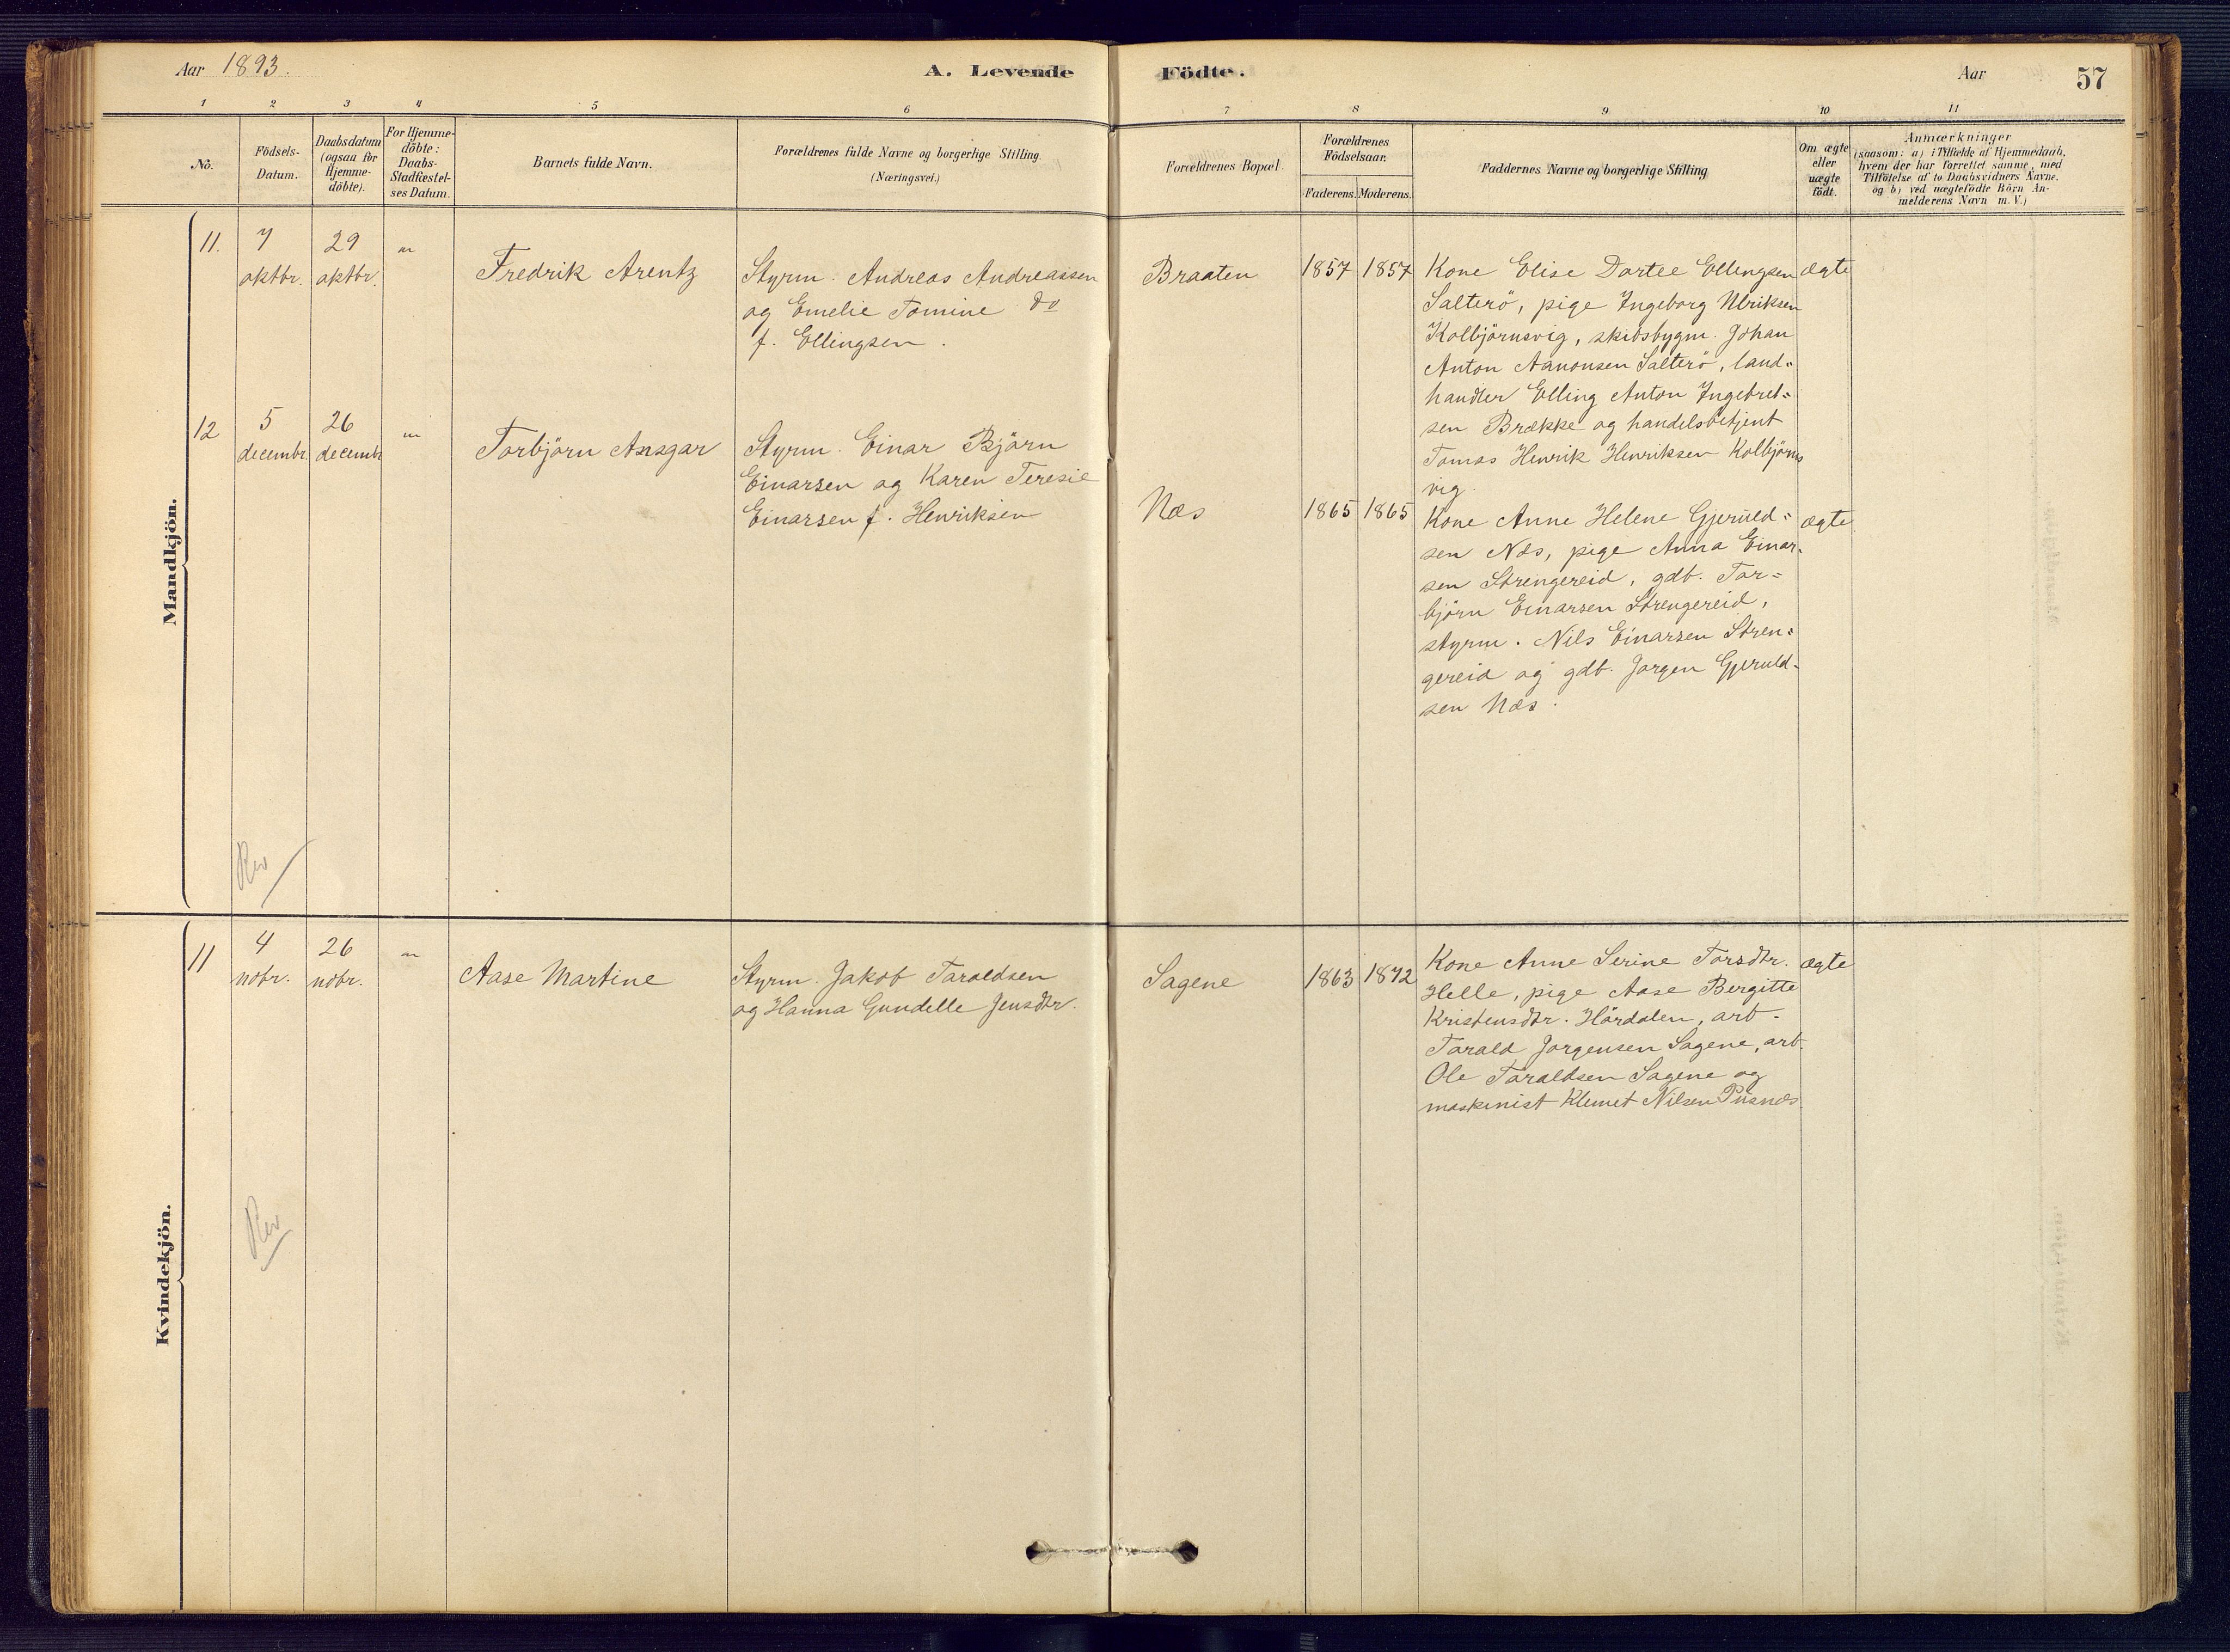 Aar 1893.
A. Levende Födte.
Aar 57
1 2 3 4 5 6 7 8 9 10 11
No.
Födsels-
Datum.
Daabsdatum
(ogsaa för
Hjemme-
döbte).
For Hjemme-
döbte:
Daabs-
Stadfæstel-
ses Datum.
Barnets fulde Navn.
Forældrenes fulde Navne og borgerlige Stilling
(Næringsvei.)
Forældrenes Bopæl.
Forældrenes
Födselsaar.
Faderens. Moderens.
Faddernes Navne og borgerlige Stilling
Om ægte
eller
uægte
födt.
Anmærkninger
(saasom: a) i Tilfælde af Hjemmedaab,
hvem der har forrettet samme, med
Tilföielse af to Daabsvidners Navne.
og b) ved uægtefödte Börn An-
melderens Navn m. V.)
Mandkjön.
11.
7
oktbr.
29
oktbr.
"
Fredrik Arentz
Styrm. Andreas Andreassen
og Emelie Tomine do
f. Ellingsen.
Braaten
1857 1857
Kone Elise Dortee Ellingsen
Salterö, pige Ingeborg Ulriksen
Kolbjörnsvig, skibsbygm. Johan
Anton Aanonsen Salterö, land=
handler Elling Anton Ingebret=
sen Brække og handelsbetjent
Tomas Henrik Henriksen Kolbjörns
vig.
ægte
12
5
decembr
26
decembr
"
Torbjörn Ansgar
Styrm. Einar Björn
Einarsen og Karen Teresie
Einarsen f. Henriksen
Næs
1865 1865
Kone Anne Helene Gjeruld=
sen Næs, pige Anna Einar-
sen Strengereid, gdb. Tor=
björn Einarsen Strengereid,
styrm. Nils Einarsen Stren=
gereid og gdb. Jorgen Gjeruld-
sen Næs.
ægte
Rev
Kvindekjön.
11
4
nobr.
26
nobr.
"
Aase Martine
Styrm. Jakob Taraldsen
og Hanna Gundelle Jensdtr.
Sagene
1863 1872
Kone Anne Serine Torsdtr.
Helle, pige Aase Bergitte
Kristensdtr. Hördalen, arb.
Tarald Jorgensen Sagene, arb.
Ole Taraldsen Sagene og
maskinist Klemet Nilsen Pusnæs
ægte
Rev